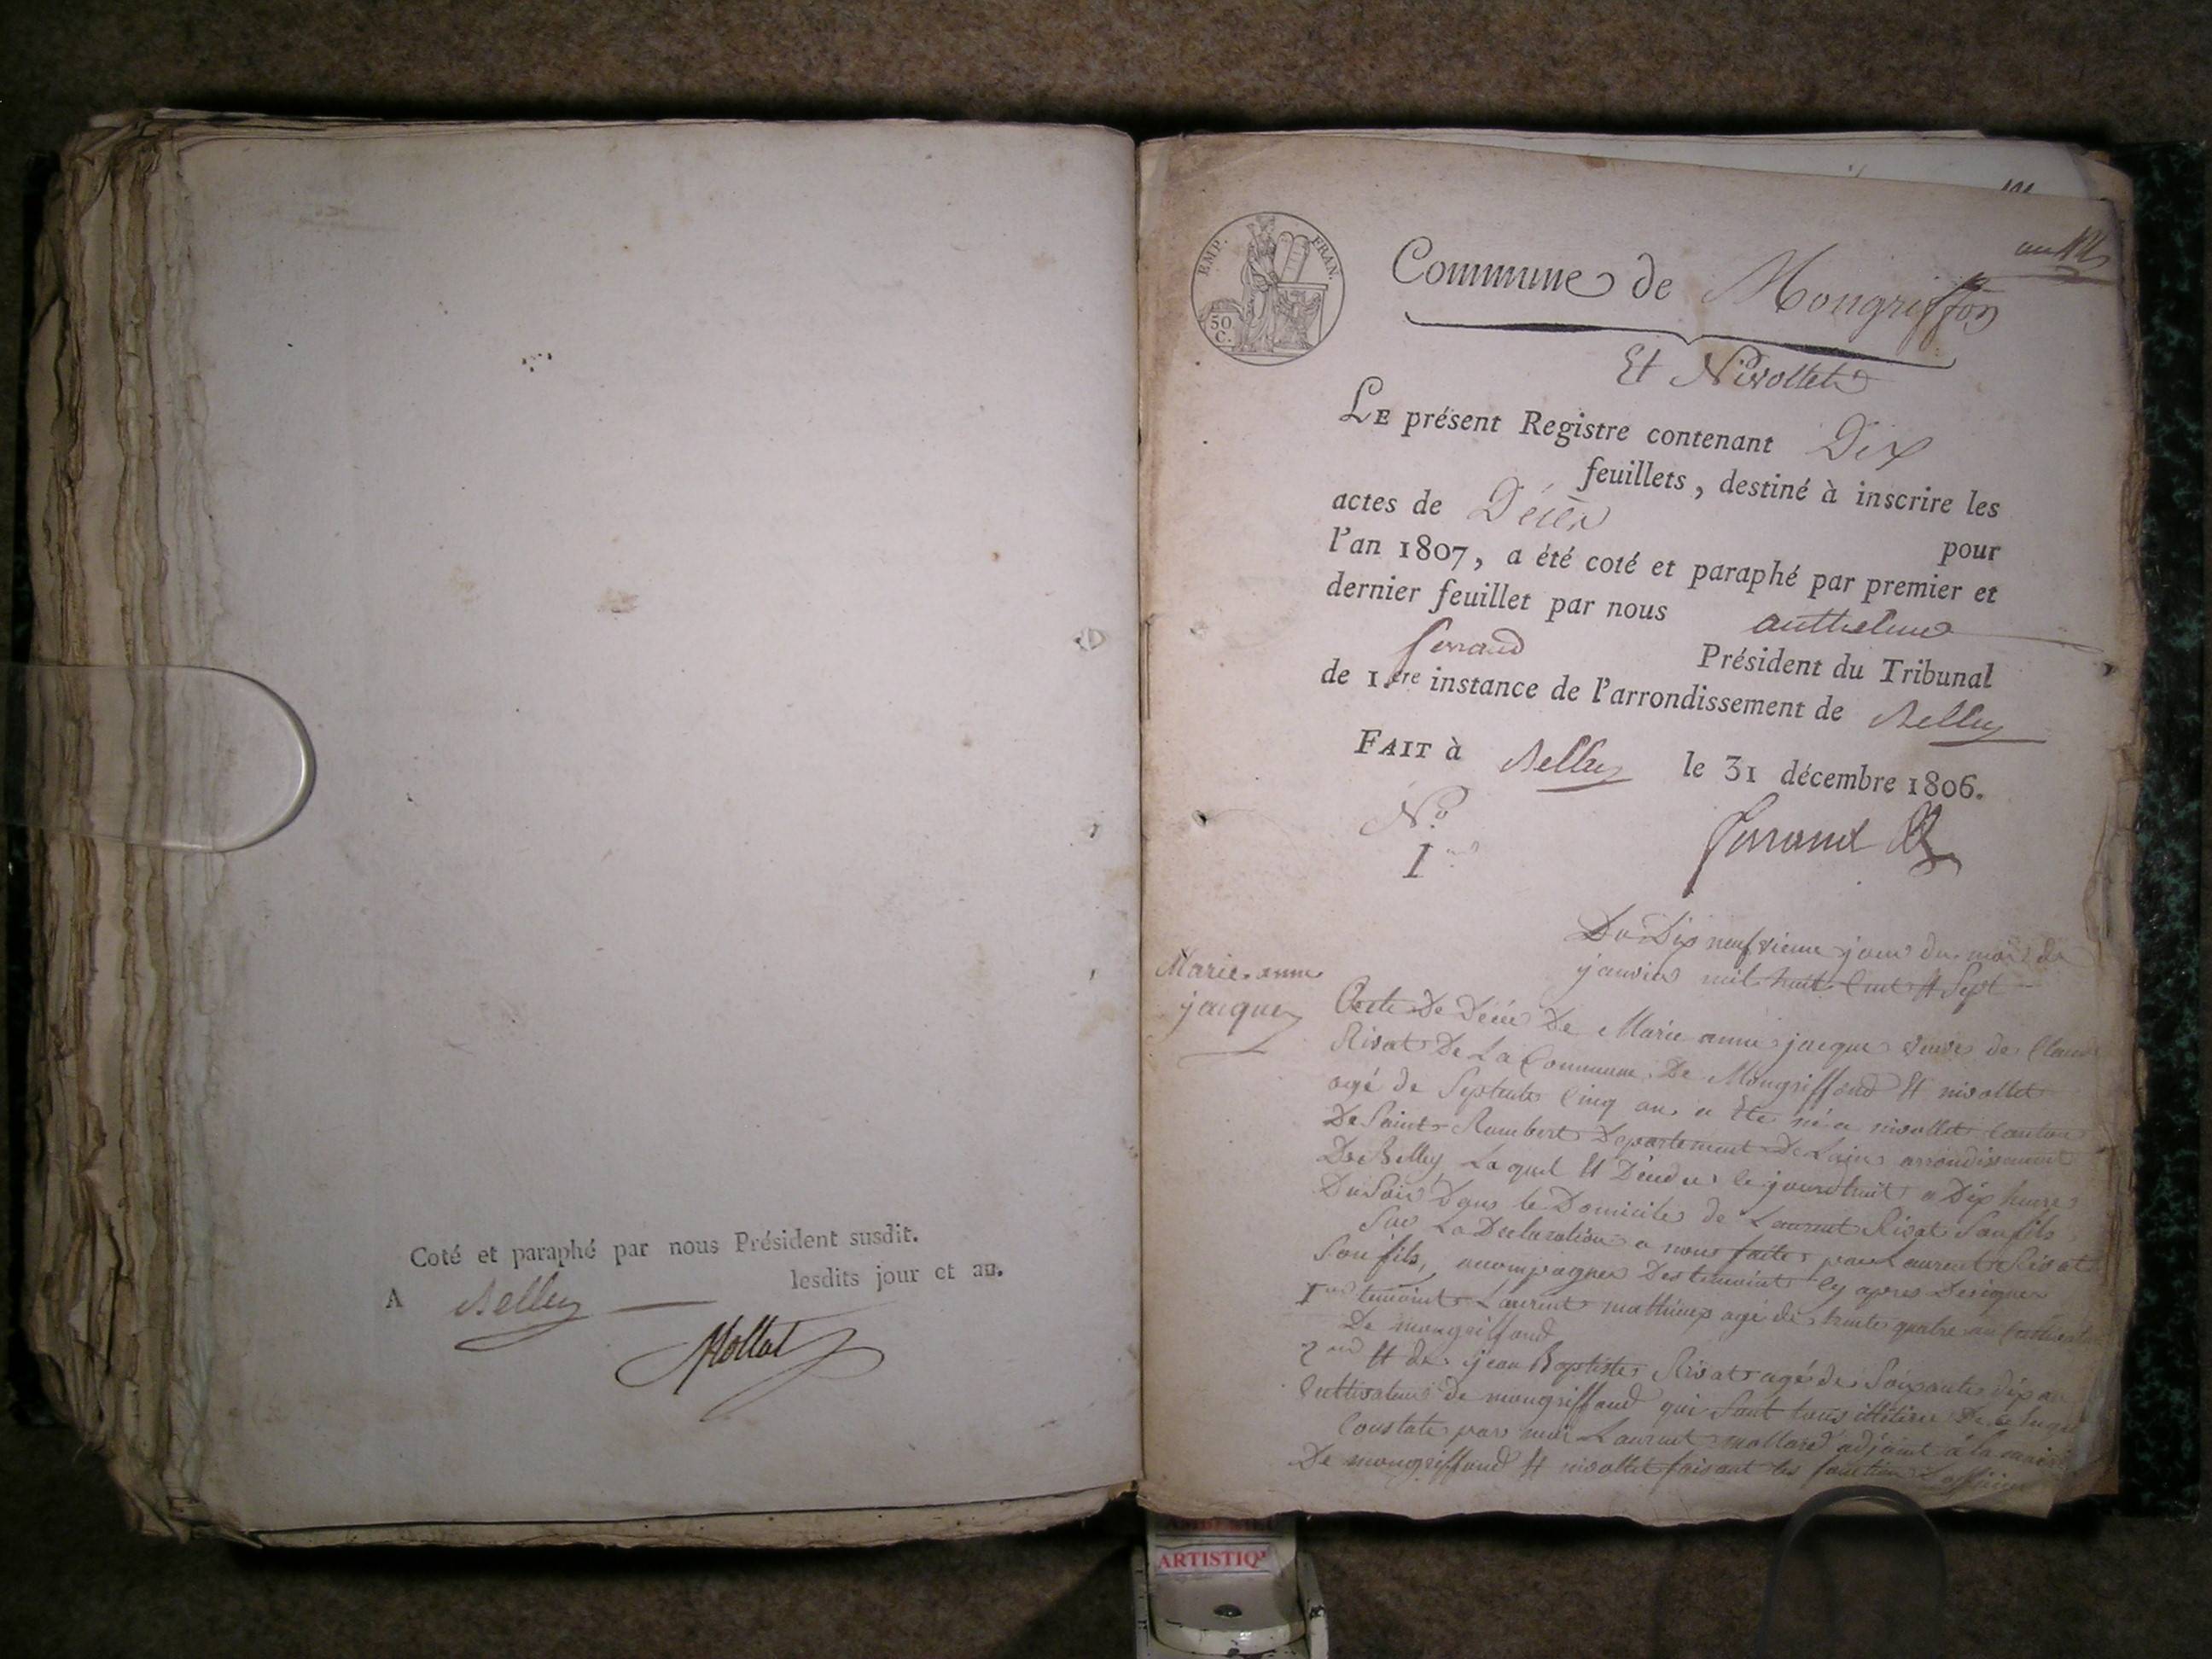 Coté et paraphé par nous Président susdit.
A Belley lesdits jour et an.
Mollat
EMP. FRAN.
50 C.
Commune de Mongriffon
Et Nivollet
LE présent Registre contenant Dix
feuillets, destiné à inscrire les
actes de Décès pour
l'an 1807, a été coté et paraphé par premier et
dernier feuillet par nous anthelme
ferrand Président du Tribunal
de 1.ere instance de l'arrondissement de Belley
FAIT à Belley le 31 décembre 1806.
N.o
1
ferrand
Du Dix neufvieme jour du mois de
janvier mil huit Cent Et Sept
Marie-anne
jacque
Acte De Décè De Marie anne jacque veuve de Claude
Rivat De La Commune De Mongriffond Et nivollet
agé de Septente Cinq an a Ete né a nivollet Canton
De Saint Rambert Departement De Lain arrondissement
De Belley Laquel Et Décédée le jourdhuit a Dix heure
Du Soir Dans le Domicile de Laurent Rivat Son fils
Sur La Declaration a nous faite par Laurent Rivat
Son fils, acompagner Des temoint Cy apres Designer
1er temoint Laurent mathieux agé de trente quatre an Cultivateur
De mongriffond
2nd Et de jean Baptiste Rivat agé de Soixante dix an
Cultivateur de mongriffond qui Sont tous illétéré De ce
Constaté par moi Laurent mollard adjoint a la mairie
De mongriffond Et nivollet faisant les fonction
ARTISTIQ